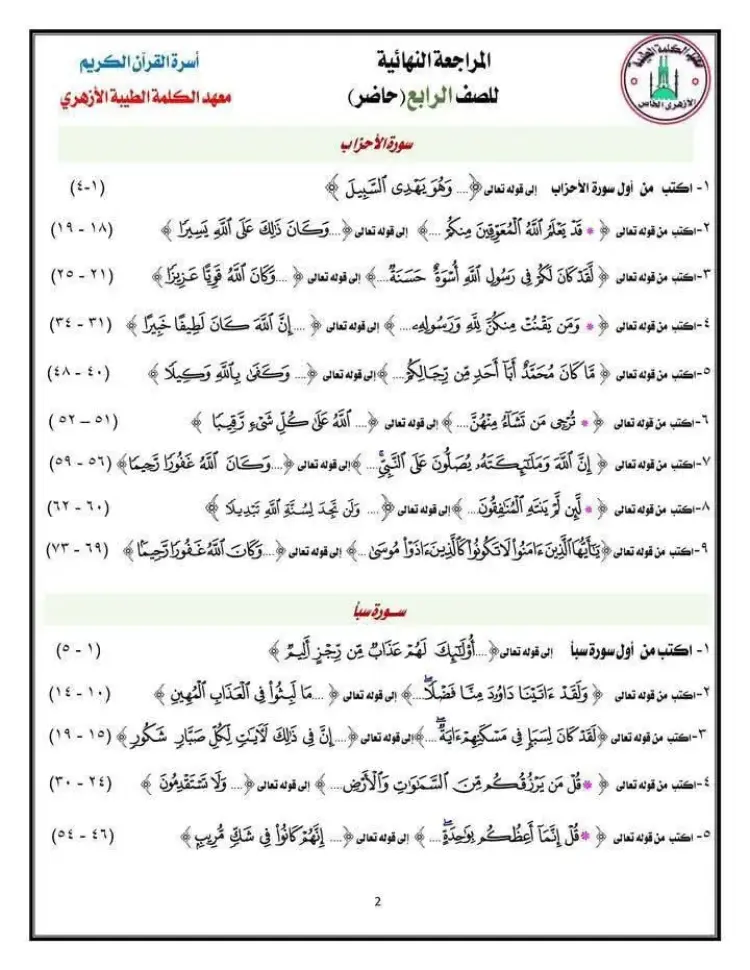 المراجعة النهائية
للصف الرابع (حاضر)
أسرة القرآن الكريم
معهد الكلمة الطيبة الأزهري
معهد الكلمة الطيبة
الأزهرى الخاص
سورة الأحزاب
١- اكتب من أول سورة الأحزاب إلى قوله تعالى ﴿.... وَهُوَ يَهْدِى السَّبِيلَ ﴾ (١-٤)
٢- اكتب من قوله تعالى ﴿ * قَدْ يَعْلَمُ اللَّهُ الْمُعَوِّقِينَ مِنكُمْ ....﴾ إلى قوله تعالى ﴿....وَكَانَ ذَٰلِكَ عَلَى اللَّهِ يَسِيرًا ﴾ (١٨ - ١٩)
٣- اكتب من قوله تعالى ﴿ لَّقَدْ كَانَ لَكُمْ فِى رَسُولِ اللَّهِ أُسْوَةٌ حَسَنَةٌ....﴾ إلى قوله تعالى ﴿ ....وَكَانَ اللَّهُ قَوِيًّا عَزِيزًا ﴾ (٢١ - ٢٥)
٤- اكتب من قوله تعالى ﴿ * وَمَن يَقْنُتْ مِنكُنَّ لِلَّهِ وَرَسُولِهِۦ.... ﴾ إلى قوله تعالى ﴿ .... إِنَّ اللَّهَ كَانَ لَطِيفًا خَبِيرًا ﴾ (٣١ - ٣٤)
٥- اكتب من قوله تعالى ﴿ مَّا كَانَ مُحَمَّدٌ أَبَآ أَحَدٍ مِّن رِّجَالِكُمْ.... ﴾ إلى قوله تعالى ﴿.... وَكَفَىٰ بِاللَّهِ وَكِيلًا ﴾ (٤٠ - ٤٨)
٦- اكتب من قوله تعالى ﴿ * تُرْجِى مَن تَشَآءُ مِنْهُنَّ.... ﴾ إلى قوله تعالى ﴿.... اللَّهُ عَلَىٰ كُلِّ شَىْءٍ رَّقِيبًا ﴾ (٥١ – ٥٢)
٧- اكتب من قوله تعالى ﴿ إِنَّ اللَّهَ وَمَلَٰٓئِكَتَهُۥ يُصَلُّونَ عَلَى النَّبِىِّۚ.... ﴾ إلى قوله تعالى ﴿....وَكَانَ اللَّهُ غَفُورًا رَّحِيمًا﴾ (٥٦ - ٥٩)
٨- اكتب من قوله تعالى ﴿ * لَّئِن لَّمْ يَنتَهِ الْمُنَٰفِقُونَ.... ﴾ إلى قوله تعالى ﴿.... وَلَن تَجِدَ لِسُنَّةِ اللَّهِ تَبْدِيلًا ﴾ (٦٠ - ٦٢)
٩- اكتب من قوله تعالى ﴿يَٰٓأَيُّهَا الَّذِينَ ءَامَنُوا۟ لَا تَكُونُوا۟ كَالَّذِينَ ءَاذَوْا۟ مُوسَىٰ ....﴾ إلى قوله تعالى ﴿....وَكَانَ اللَّهُ غَفُورًا رَّحِيمًا﴾ (٦٩ - ٧٣)
سورة سبأ
١- اكتب من أول سورة سبأ إلى قوله تعالى ﴿....أُو۟لَٰٓئِكَ لَهُمْ عَذَابٌ مِّن رِّجْزٍ أَلِيمٌ ﴾ (١ - ٥)
٢- اكتب من قوله تعالى ﴿ وَلَقَدْ ءَاتَيْنَا دَاوُۥدَ مِنَّا فَضْلًاۖ....﴾ إلى قوله تعالى ﴿ ....مَا لَبِثُوا۟ فِى الْعَذَابِ الْمُهِينِ ﴾ (١٠ - ١٤)
٣- اكتب من قوله تعالى ﴿لَقَدْ كَانَ لِسَبَإٍ فِى مَسْكَنِهِمْ ءَايَةٌۖ ....﴾ إلى قوله تعالى ﴿....إِنَّ فِى ذَٰلِكَ لَءَايَٰتٍ لِّكُلِّ صَبَّارٍ شَكُورٍ﴾ (١٥ - ١٩)
٤- اكتب من قوله تعالى ﴿ *قُلْ مَن يَرْزُقُكُم مِّنَ السَّمَٰوَٰتِ وَالْأَرْضِ.... ﴾ إلى قوله تعالى ﴿.... وَلَا تَسْتَقْدِمُونَ ﴾ (٢٤ - ٣٠)
٥- اكتب من قوله تعالى ﴿ *قُلْ إِنَّمَآ أَعِظُكُم بِوَٰحِدَةٍۖ.... ﴾ إلى قوله تعالى ﴿.... إِنَّهُمْ كَانُوا۟ فِى شَكٍّ مُّرِيبٍۭ﴾ (٤٦ - ٥٤)
2